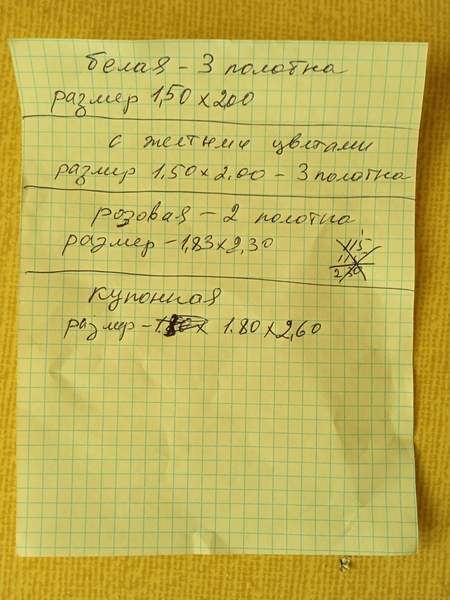 белая – 3 полотна
размер 1,50 х 2,00
с желтыми цветами
размер 1,50 х 2,00 – 3 полотна
розовая – 2 полотна
размер – 1,83 х 2,30
купонная
размер – 1.80 х 2,60